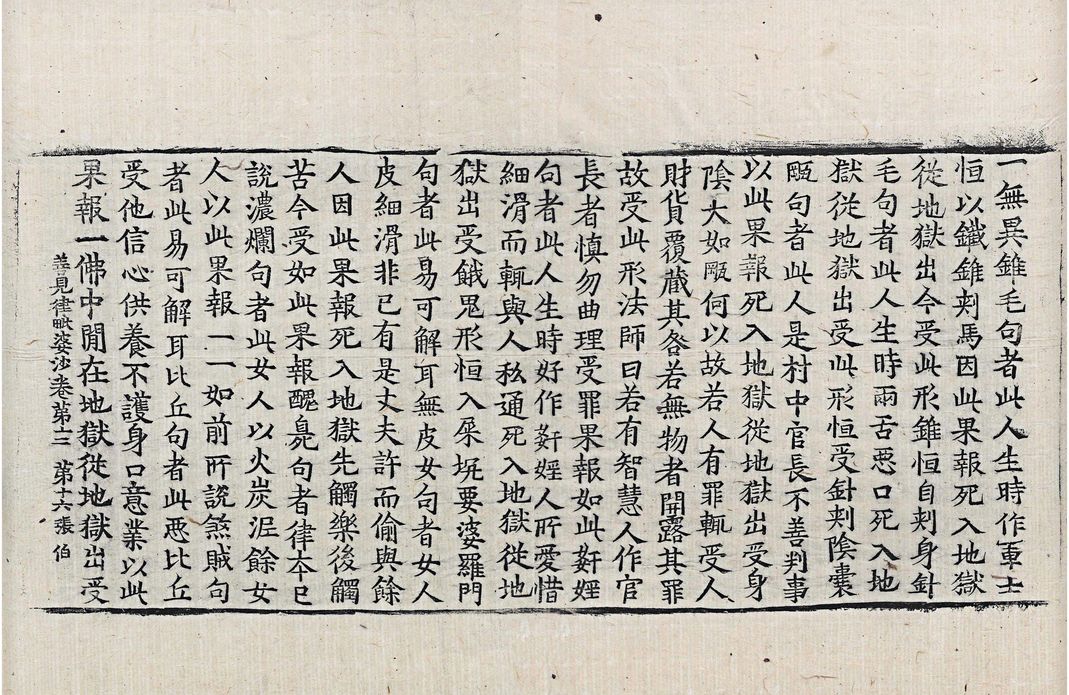 一無異錐毛句者此人生時作軍士
恒以鐵錐刾馬因此果報死入地獄
從地獄出今受此形錐恒自刾身針
毛句者此人生時兩舌惡口死入地
獄從地獄出受此形恒受針刾陰囊
甌句者此人是村中官長不善判事
以此果報死入地獄從地獄出受身
陰大如甌何以故若人有罪輒受人
財貨覆藏其咎若無物者開露其罪
故受此形法師曰若有智慧人作官
長者慎勿曲理受罪果報如此姧婬
句者此人生時好作姧婬人所愛惜
細滑而輒與人私通死入地獄從地
獄出受餓鬼形恒入屎坑要婆羅門
句者此易可解耳無皮女句者女人
皮細滑非已有是丈夫許而偷與餘
人因此果報死入地獄先觸樂後觸
苦今受如此果報醜臭句者律夲已
說濃爛句者此女人以火炭涩餘女
人以此果報一一如前所說煞賊句
者此易可解耳比丘句者此惡比丘
受他信心供養不護身口意業以此
果報一佛中閒在地獄從地獄出受
善見律毗婆沙卷第十三　第十六張　伯